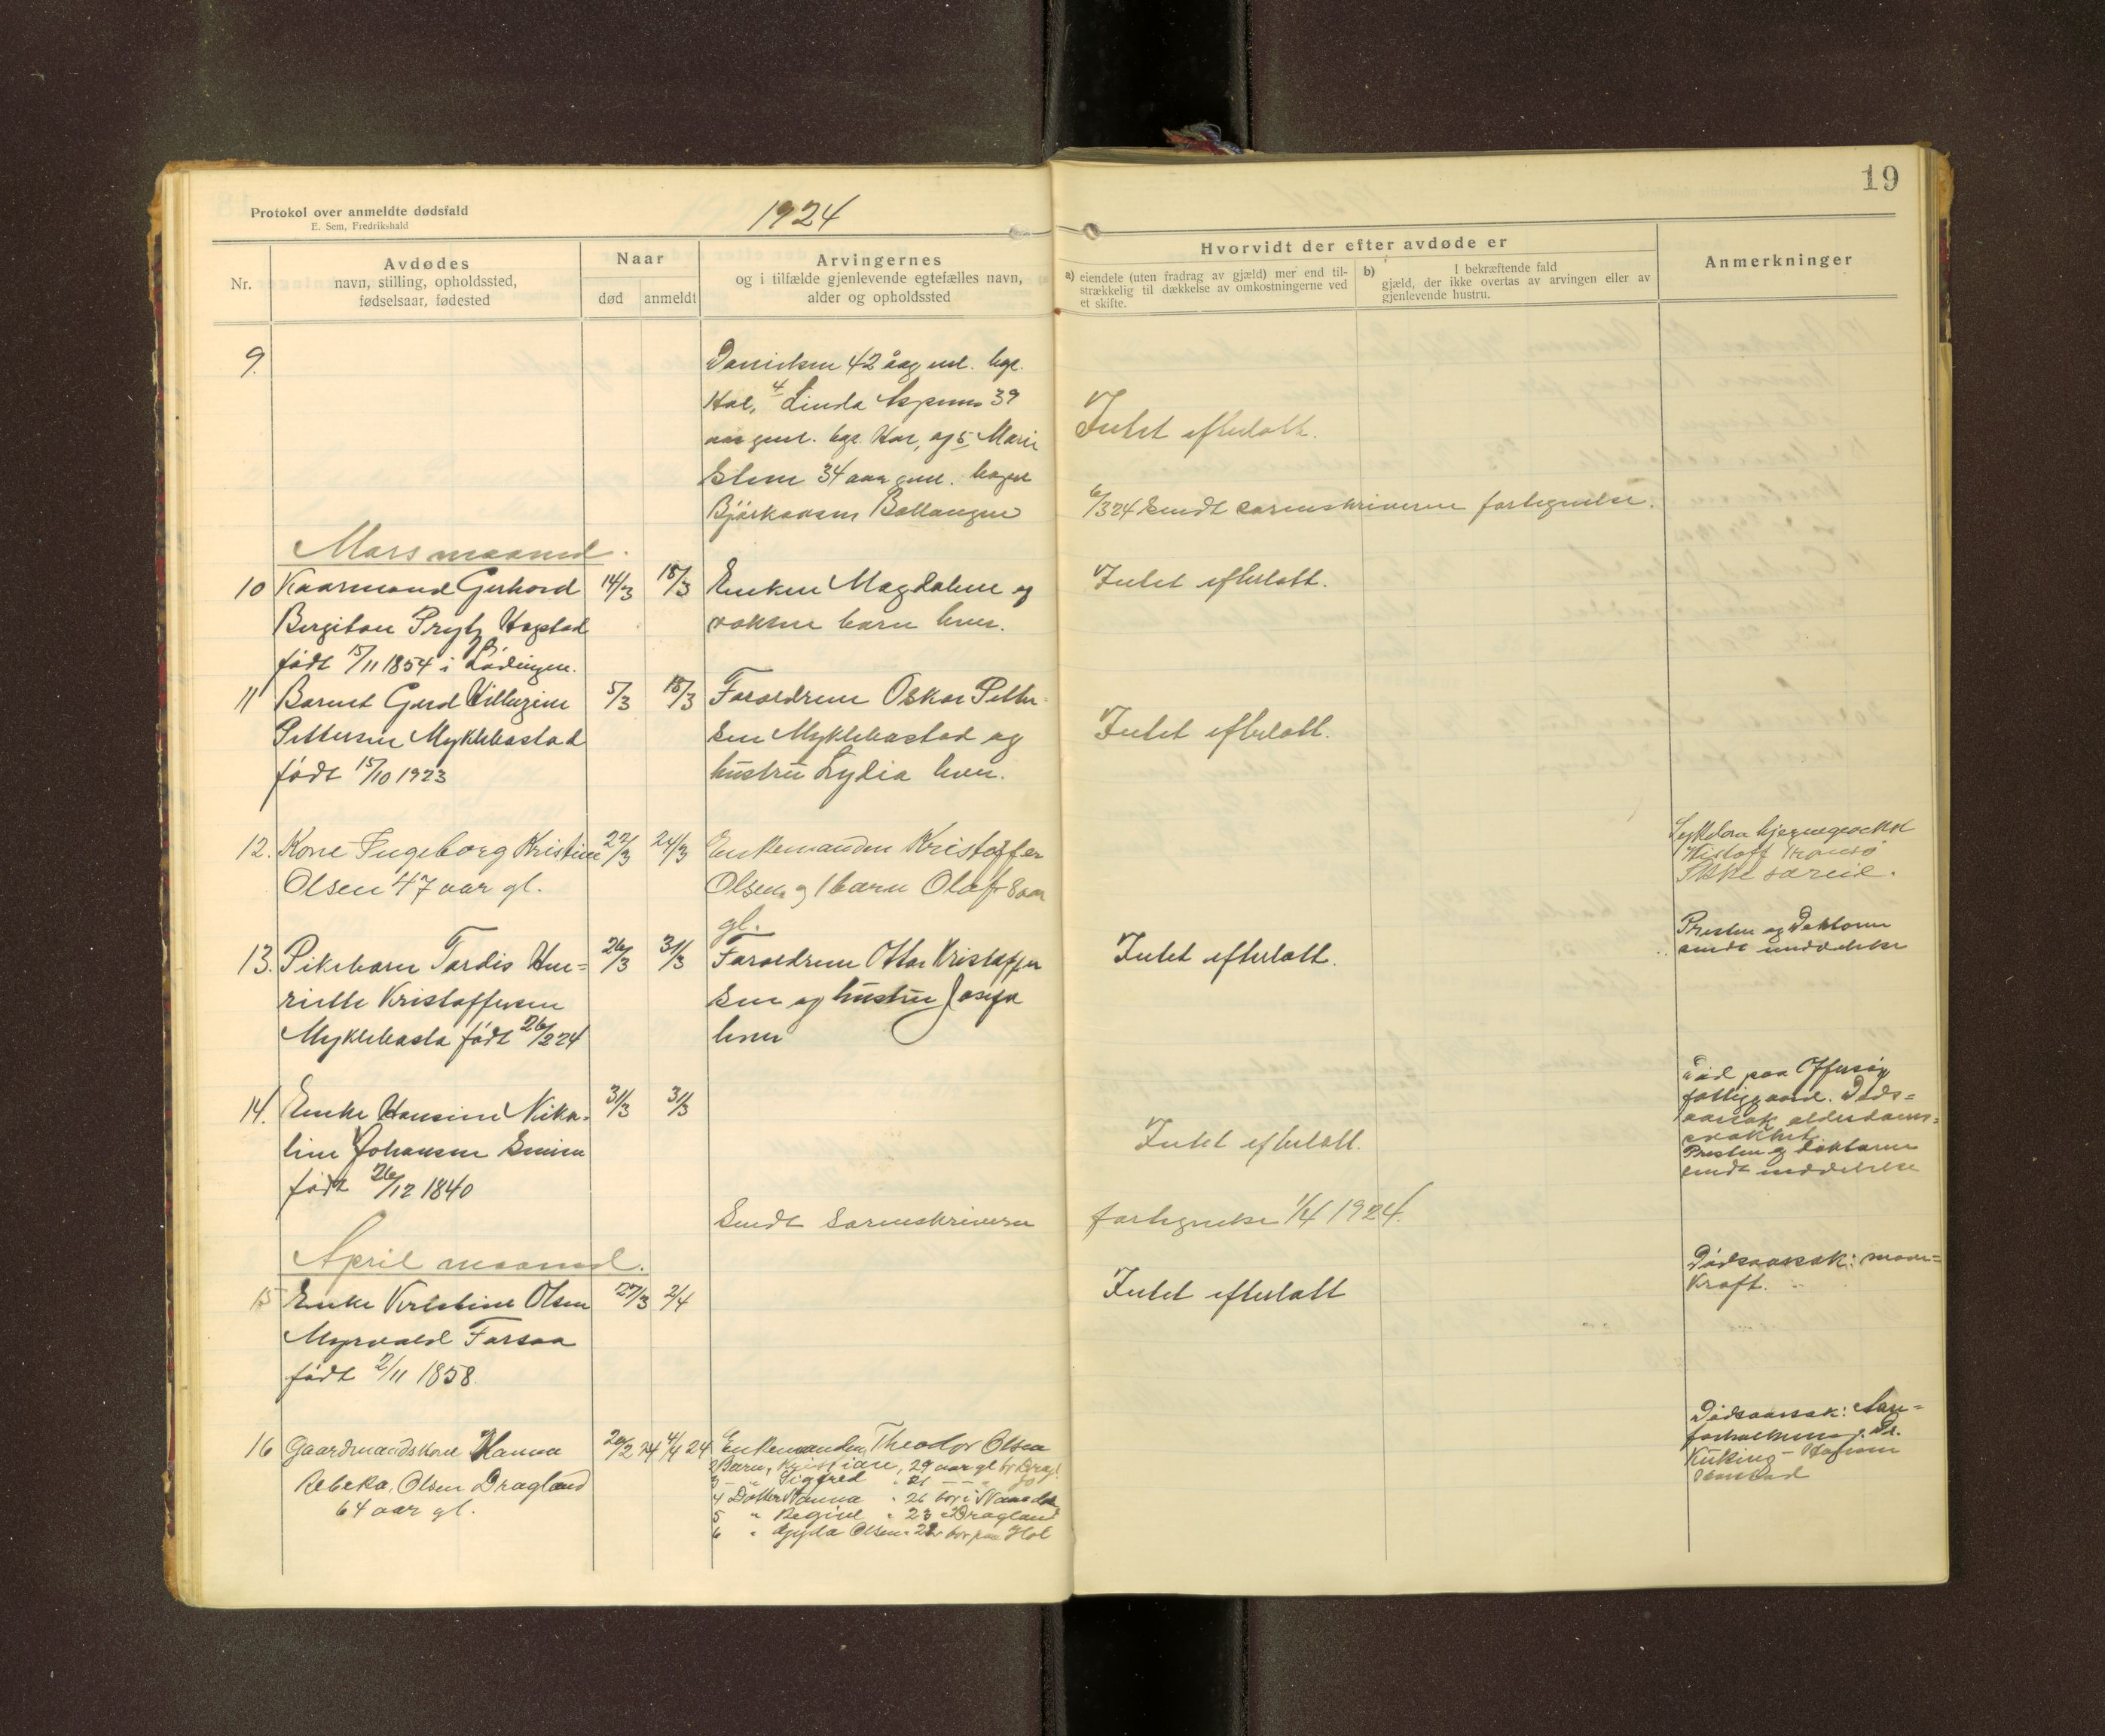 19
Protokol over anmeldte dødsfald
E. Sem, Fredrikshald
1924
Nr.
Avdødes
navn, stilling, opholdssted,
fødselsaar, fødested
Naar
død
anmeldt
Arvingernes
og i tilfælde gjenlevende egtefælles navn,
alder og opholdssted
Hvorvidt der efter avdøde er
a) eiendele (uten fradrag av gjæld) mer end til-
strækkelig til dækkelse av omkostningerne ved
et skifte.
b) I bekræftende fald
gjæld, der ikke overtas av arvingen eller av
gjenlevende hustru.
Anmerkninger
9.
42
Hol, 4 Linda 39
aar gml. Hol, og 5 Marie
34 aar gml.
Ballangen
Intet efterlatt.
6/3 24 Sendt sorenskriveren fortegnelse.
Mars maaned.
10 Kaarmand Gerhard
Bergiton Prytz Hogstad
født 15/11 1854 i Lødingen.
14/3 18/3
Enken Magdalene og
voksne barn hver.
Intet efterlatt.
11 Barnet Gerd
Pettersen Myklebostad
født 15/10 1923
5/3 18/3
Foraldrene Oskar Petter-
sen Myklebostad og
hustru Lydia hver.
Intet efterlatt.
12. Kone Ingeborg Kristine
Olsen 47 aar gl.
22/3 24/3
Enkemanden Kristoffer
Olsen og 1 barn Olaf 8 aar
gl.
Ikke særeie.
13. Pikebarn Tordis Hen-
riette Kristoffersen
Myklebosta født 26/2 24
26/3 31/3
Foraldrene Ottar Kristoffer
sen og hustru Josefa
hver
Intet efterlatt.
Presten og Doktoren
sendt meddelelse
14. Enke Hansine Niko-
line Johansen
født 26/12 1840
31/3 31/3
Intet efterlatt.
Død paa Offersøy
fattiggaard. Døds-
aarsak alderdoms-
svakhet.
Presten og Doktoren
sendt meddelelse
Sendt Sorenskriveren
fortegnelse 1/4 1924.
April maaned.
15 Enke Kristine Olsen
Myrvold Forsaa
født 2/11 1858.
27/3 2/4
Intet efterlatt
Dødsaarsak: mave-
kraft.
16 Gaardmandskone Hanna
Rebeka Olsen Dragland
64 aar gl.
20/2 24 4/4 24
Enkemanden Theodor Olsen
2 Barn, Kristian, 29 aar gl bor Dragl.
3 " Sigfred " 21
4 Datter Hanna " 26 bor i
5 " " 23 " Dragland
6 " Gyda Olsen " 22 bor paa Hol
Dødsaarsak: Aare-
forkalkning. Dr.